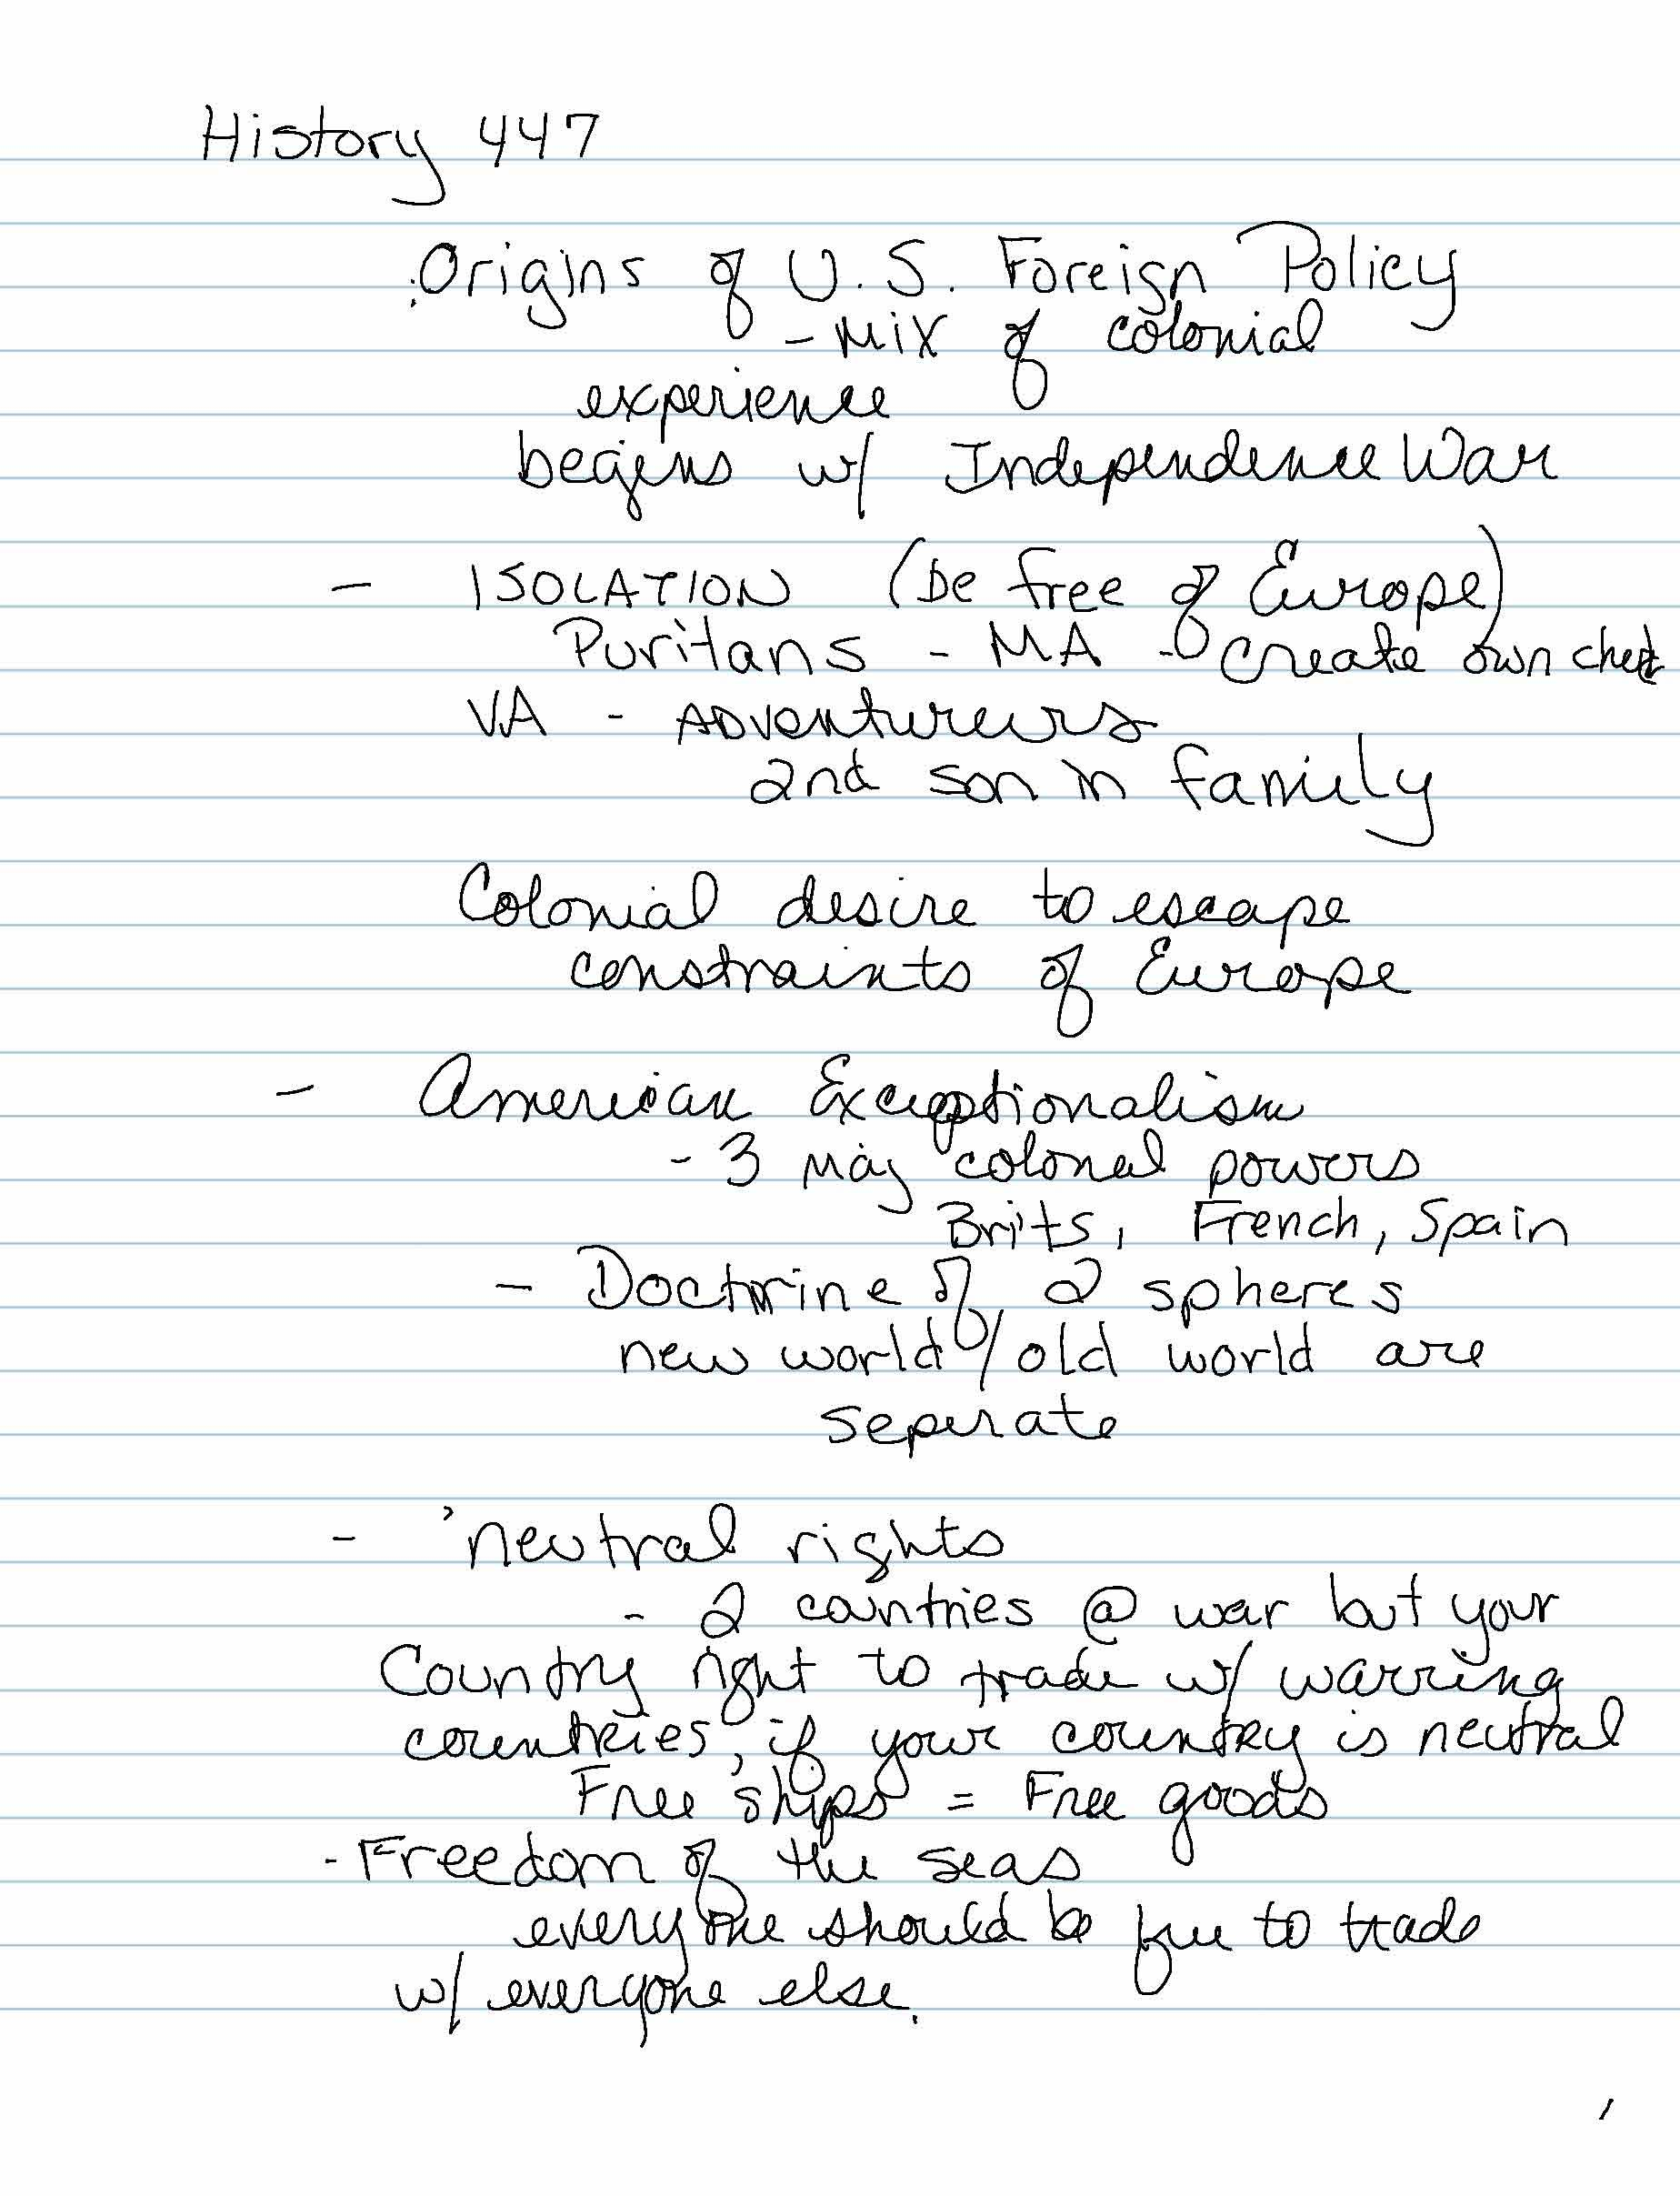 History 447
Origins of U.S. Foreign Policy
- Mix of colonial
experience
begins w/ Independence War
- ISOLATION (be free of Europe)
Puritans - MA - create own
VA - ADventurers
2nd son in family
Colonial desire to escape
constraints of Europe
- American Exceptionalism
- 3 maj colonal powers
Brits, French, Spain
- Doctrine of 2 spheres
new world / old world are
seperate
- neutral rights
- 2 countries @ war but your
Country right to trade w/ warring
countries, if your country is neutral
Free ships = Free goods
- Freedom of the seas
everyone should be free to trade
w/ everyone else.